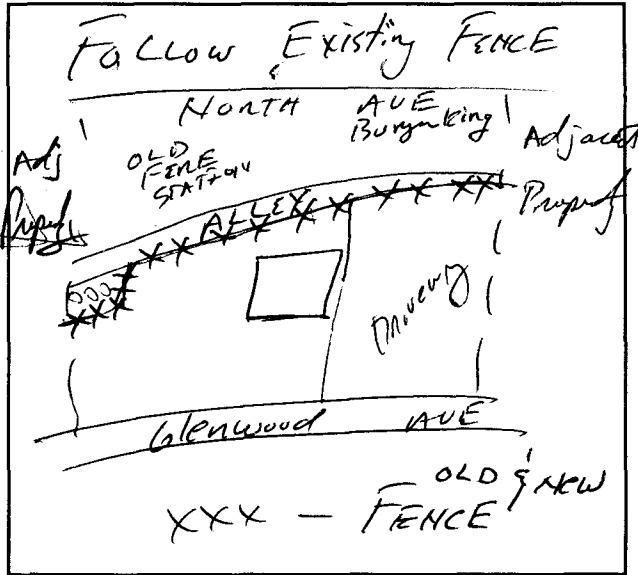 FOLLOW Existing FENCE
NORTH AVE
Burger King
Adj
Property
OLD
FIRE
STATION
Adjacent
Property
ALLEY
XXX XX XX XX XX XX XXX
OOO
Driveway
Glenwood AVE
OLD & NEW
XXX — FENCE